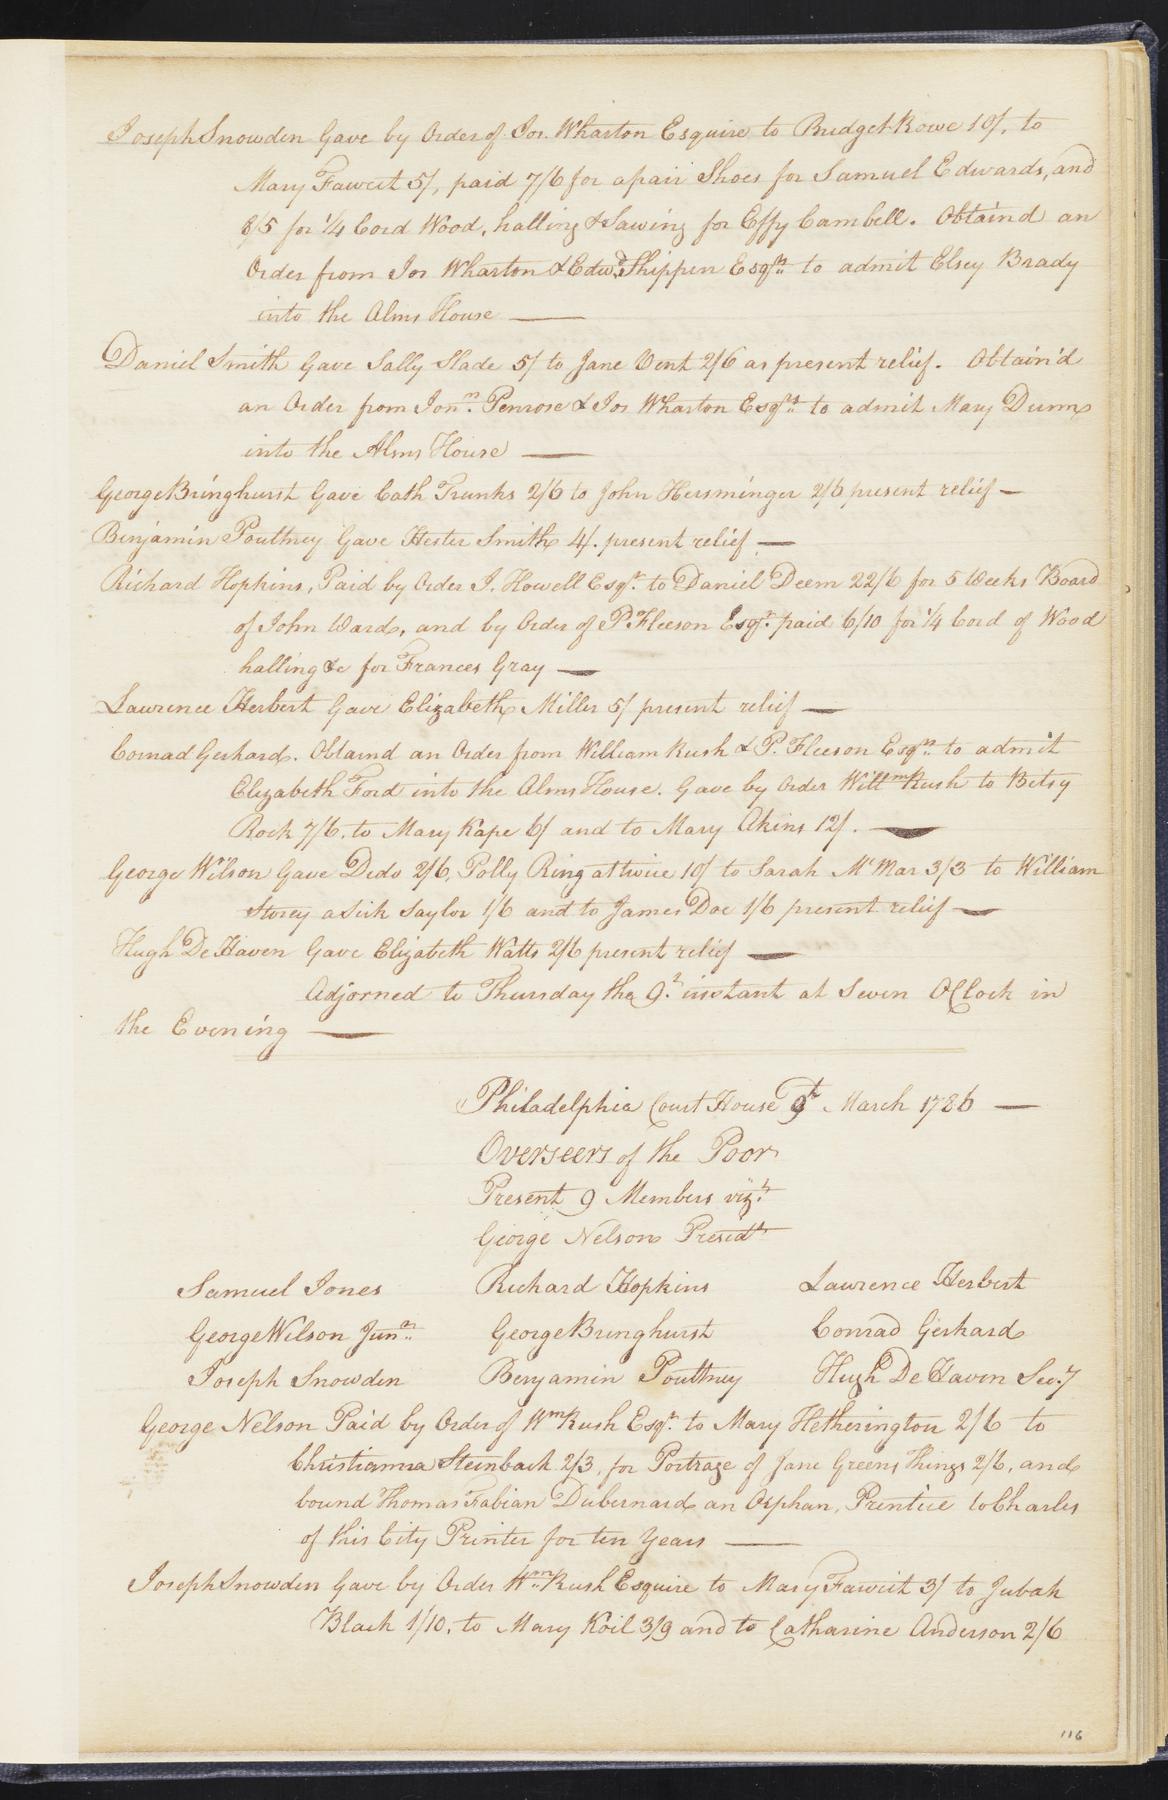 Joseph Snowden Gave by Order of Jos. Wharton Esquire to Bridget Rowe 10/, to
Mary Fawcit 5/, paid 7/6 for a pair Shoes for Samuel Edwards, and
8/5 for 1/4 Cord Wood, halling & Sawing for Effy Cambell. Obtaind an
Order from Jos Wharton & Edwd. Shippen Esqrs. to admit Elsey Brady
into the Alms House —
Daniel Smith Gave Sally Slade 5/ to Jane Vent 2/6 as present relief. Obtain'd
an Order from Jonn. Penrose & Jos Wharton Esqrs. to admit Mary Dunn
into the Alms House —
George Bringhurst Gave Cath Trunks 2/6 to John Hersminger 2/6 present relief —
Benjamin Poultney Gave Hester Smith 4/. present relief —
Richard Hopkins, Paid by Order J. Howell Esqr. to Daniel Deem 22/6 for 5 Weeks Board
of John Ward, and by Order of P. Fleeson Esqr. paid 6/10 for 1/4 Cord of Wood
halling &c for Frances Gray —
Lawrence Herbert Gave Elizabeth Miller 5/ present relief —
Conrad Gerhard. Obtaind an Order from William Rush & P. Fleeson Esqrs. to admit
Elizabeth Ford into the Alms House. Gave by Order Willm Rush to Betsy
Rock 7/6. to Mary Kape 6/ and to Mary Akins 12/. —
George Wilson Gave Dedo 2/6, Polly Ring at twice 10/ to Sarah Mc Mar 3/3 to William
Storey a Sick Saylor 1/6 and to James Doe 1/6 present relief —
Hugh De Haven Gave Elizabeth Watts 2/6 present relief —
Adjorned to Thursday the 9th. instant at Seven O Clock in
the Evening —
Philadelphia Court House 9th March 1786 —
Overseers of the Poor
Present 9 Members vizt.
George Nelson Presidt
Samuel Jones Richard Hopkins Lawrence Herbert
George Wilson Junr. George Bringhurst Conrad Gerhard
Joseph Snowden Benjamin Poultney Hugh De Haven Secy
George Nelson Paid by Order of Wm Rush Esqr. to Mary Hetherington 2/6 to
Christianna Steinback 2/3, for Portrage of Jane Greens things 2/6, and
bound Thomas Fabian Dubernard an Orphan, Prentice to Charles
of this City Printer for ten Years —
Joseph Snowden Gave by Order Wm. Rush Esquire to Mary Fawcit 3/ to Jubah
Black 1/10, to Mary Koil 3/9 and to Catharine Anderson 2/6
116